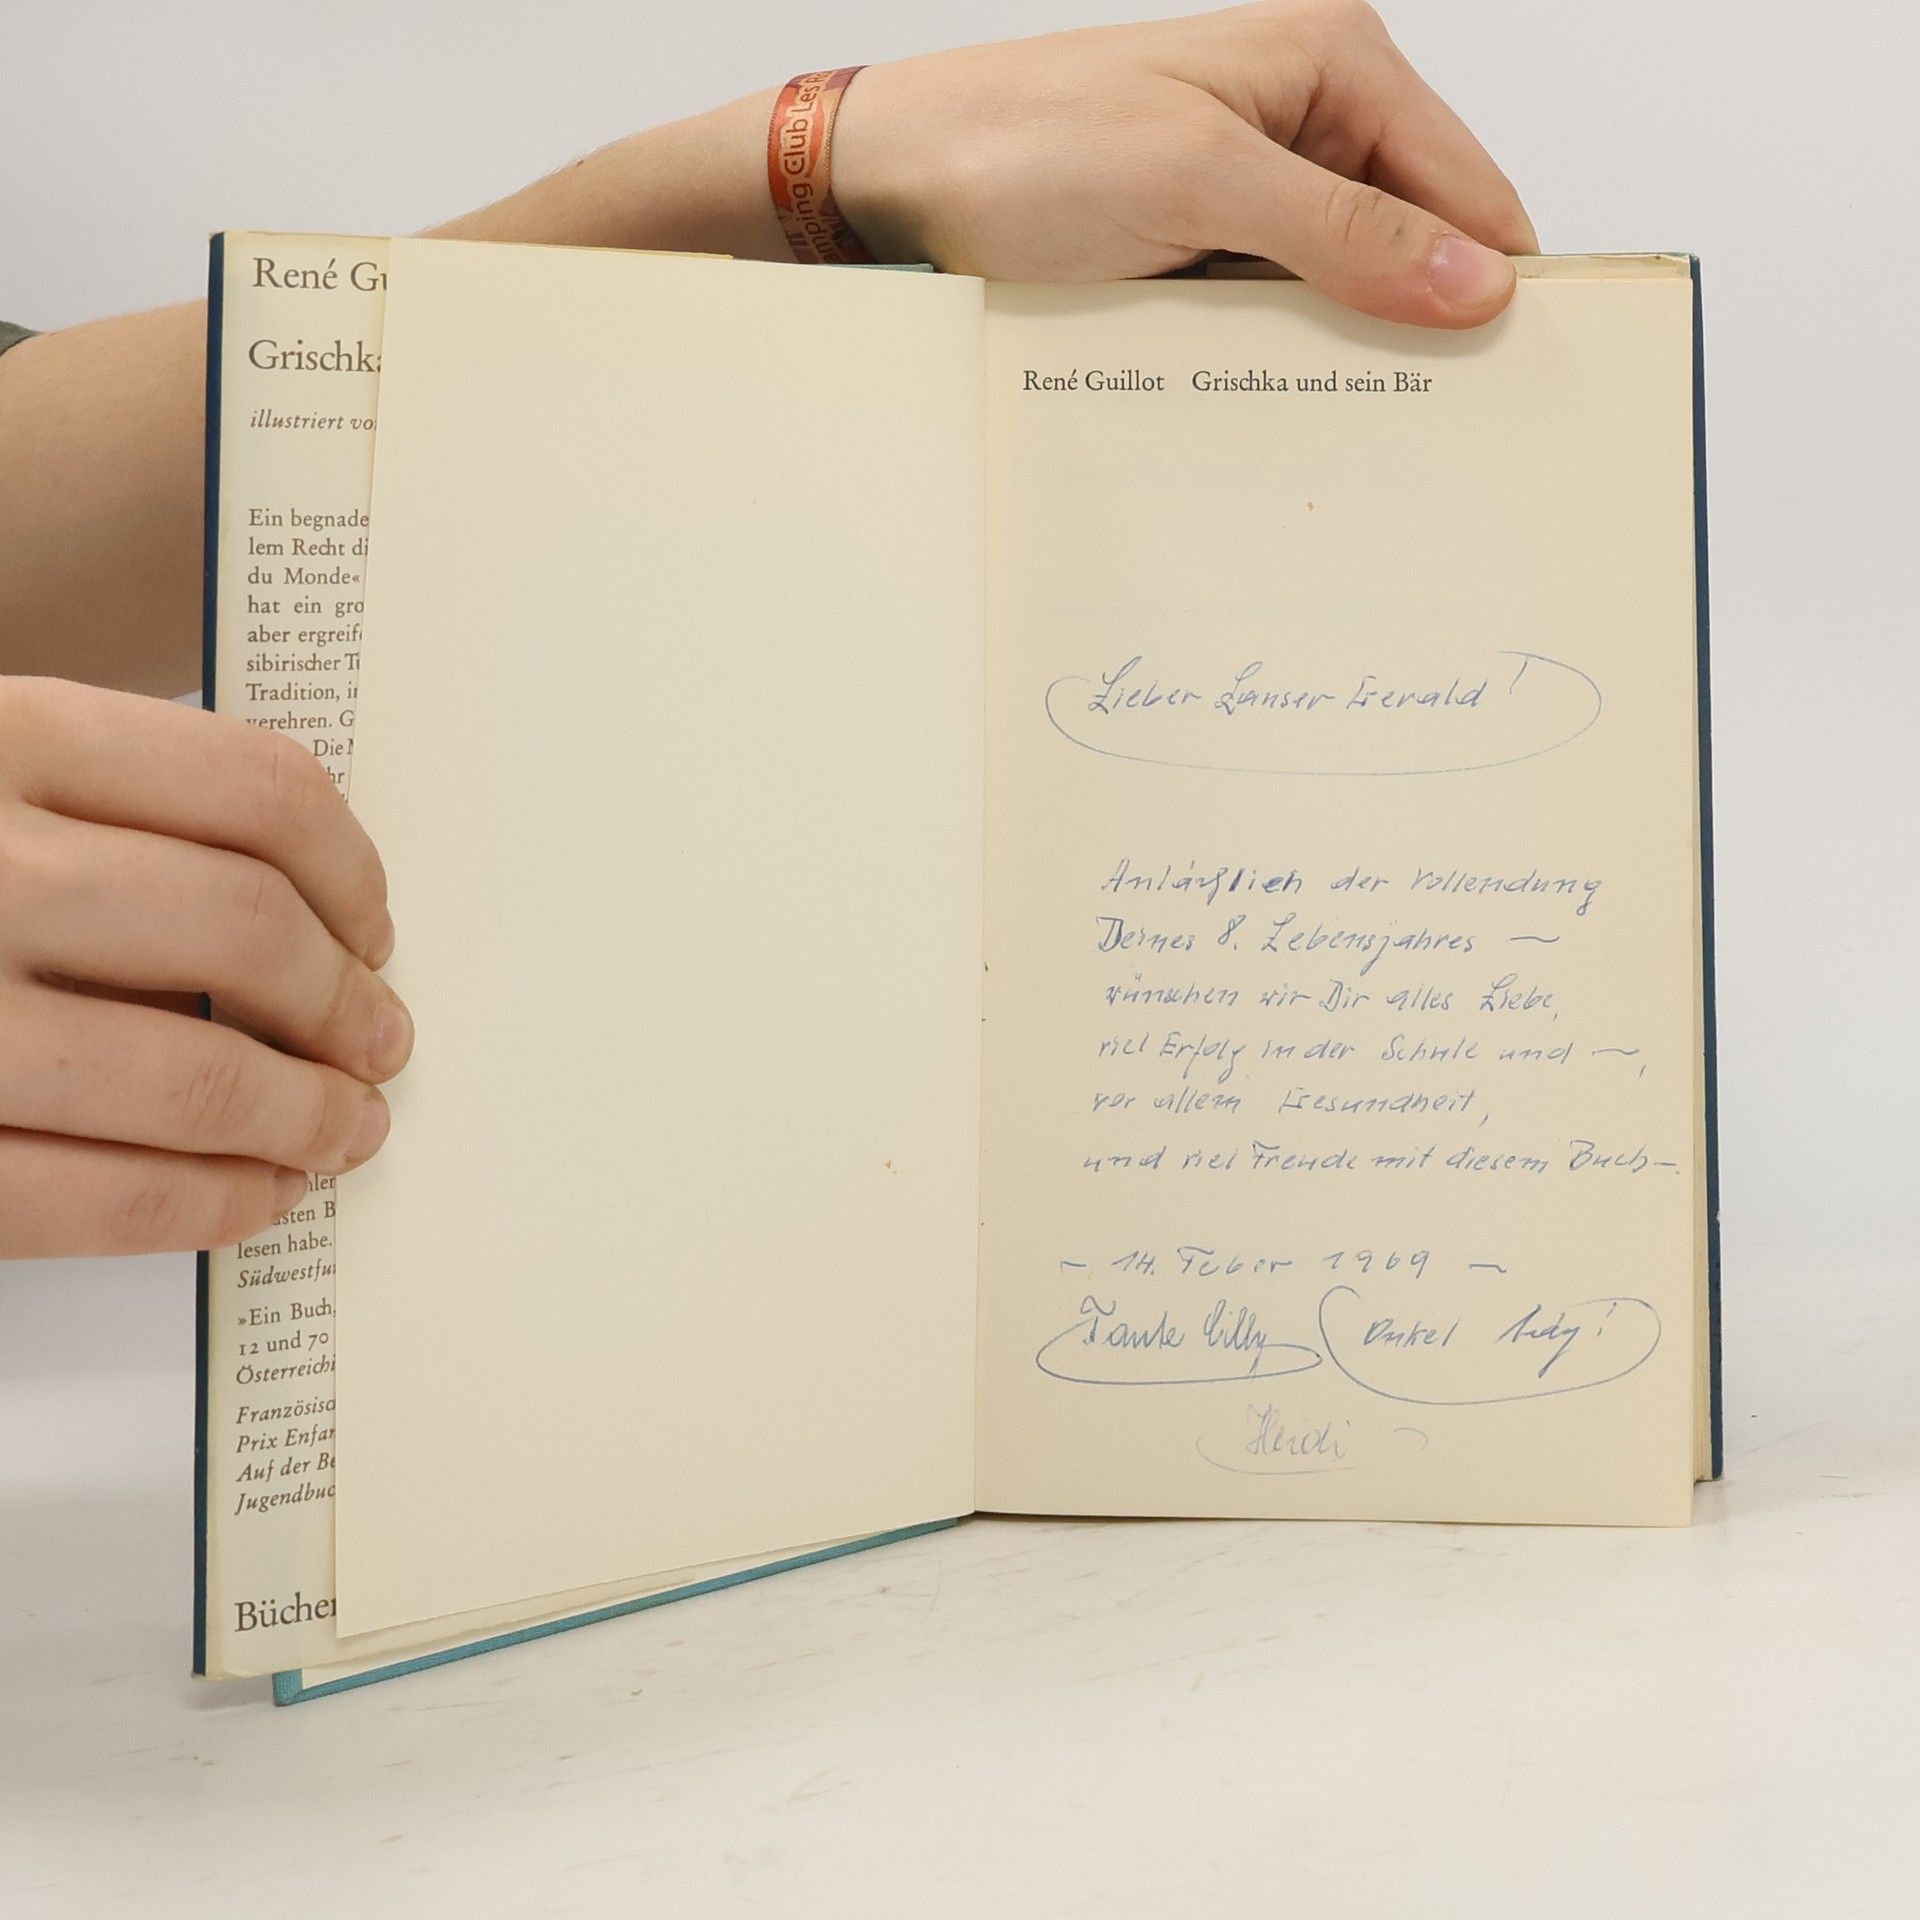 René Gu
Grischka
illustriert vo
Ein begnade
lem Recht di
du Monde«
hat ein gro
aber ergreif
sibirischer T
Tradition, i
verehren. G
Die
hr
hler
sten B
lesen habe.
Südwestfu
»Ein Buch,
12 und 70
Österreichi
Französisc
Prix Enfan
Auf der Be
Jugendbuc
Bücher
René Guillot Grischka und sein Bär
Lieber Lanser Gerald!
Anläßlich der Vollendung
Deines 8. Lebensjahres —
wünschen wir Dir alles Liebe,
viel Erfolg in der Schule und —,
vor allem Gesundheit,
und viel Freude mit diesem Buch —.
~ 14. Feber 1969 ~
Tante Cilly Onkel
Heidi
ping Club Les